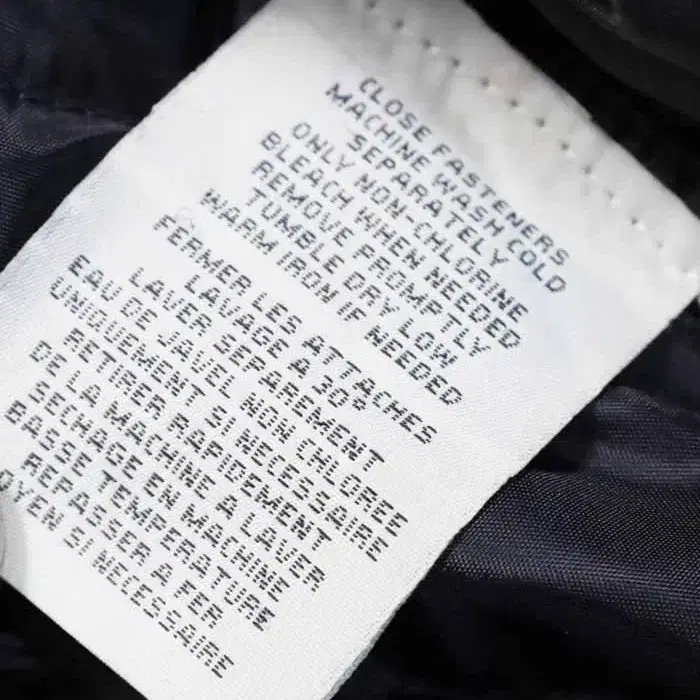 CLOSE FASTENERS
MACHINE WASH COLD
SEPARATELY
ONLY NON-CHLORINE
BLEACH WHEN NEEDED
REMOVE PROMPTLY
TUMBLE DRY LOW
WARM IRON IF NEEDED
FERMER LES ATTACHES
LAVAGE A 30°
LAVER SEPAREMENT
EAU DE JAVEL NON CHLOREE
UNIQUEMENT SI NECESSAIRE
RETIRER RAPIDEMENT
DE LA MACHINE A LAVER
SECHAGE EN MACHINE
BASSE TEMPERATURE
REPASSER A FER
OYEN SI NECESSAIRE